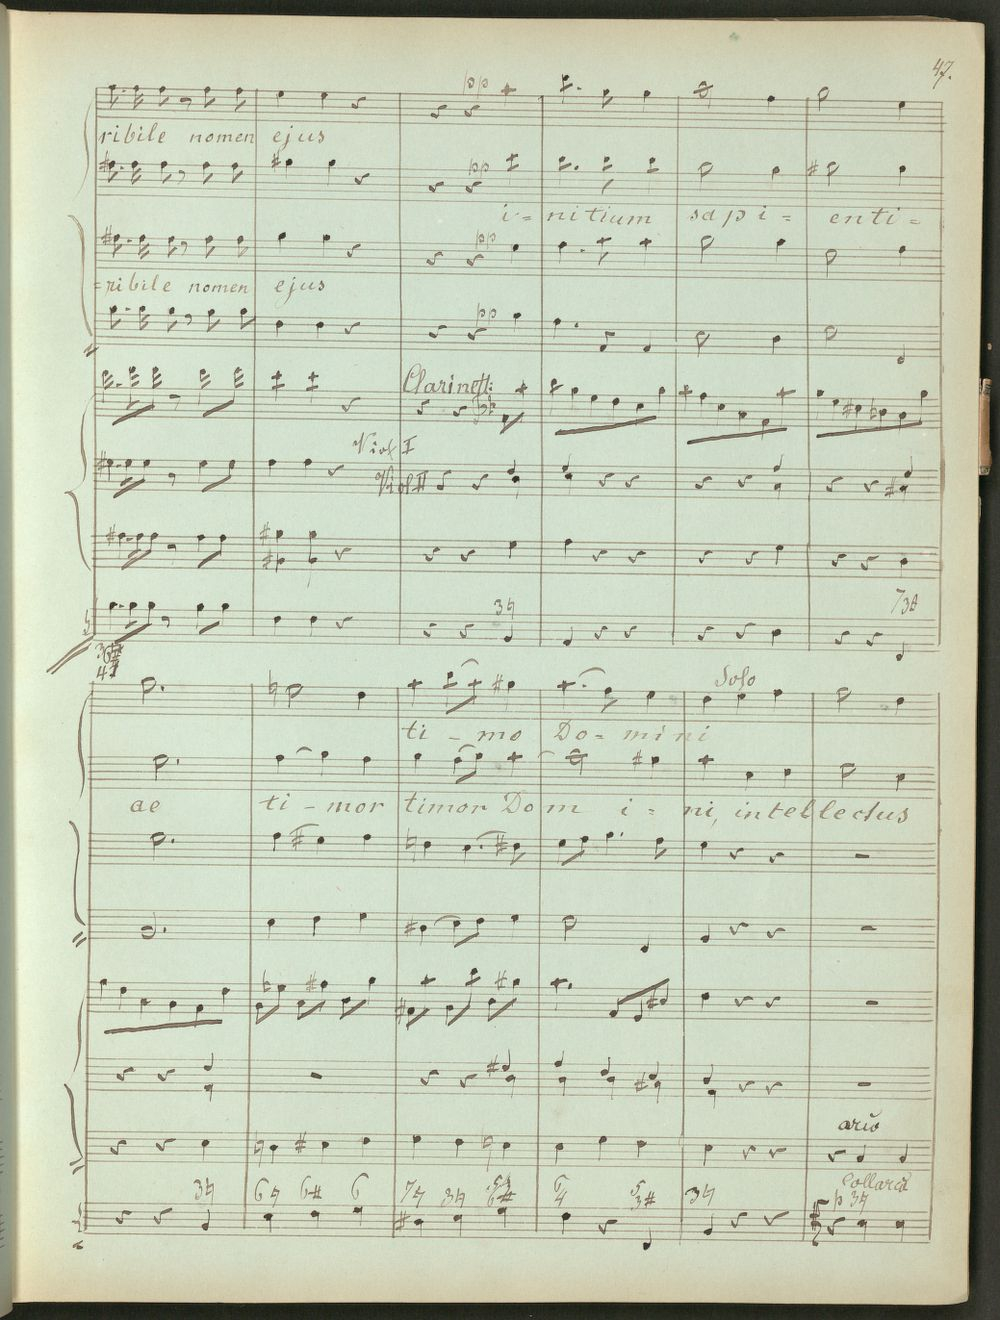 47.
pp
ribile nomen ejus
pp
i = nitium sapi = enti =
pp
= ribile nomen ejus
pp
Clarinett:
Viol I
Viol II
3♮
Solo
ti - mo Do = mini
ae ti - mor timor Dom i = ni, intellectus
3♮ 6♮ 6# 6 7♮ 3♮ 6 4 5 3# 3♮ p 3♮